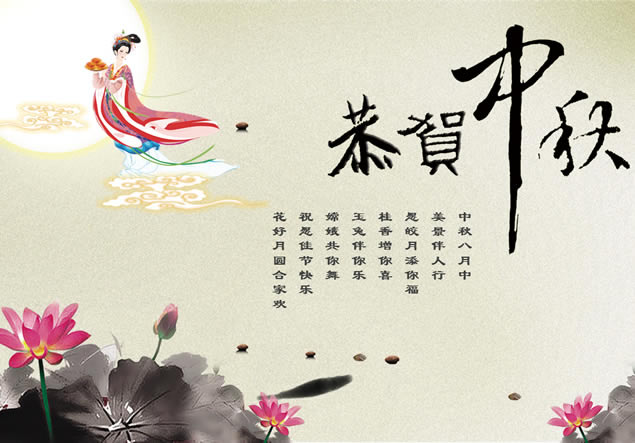 恭賀中秋
中秋八月中
美景伴人行
愿皎月添你福
桂香增你喜
玉兔伴你乐
嫦娥共你舞
祝您佳节快乐
花好月圆合家欢